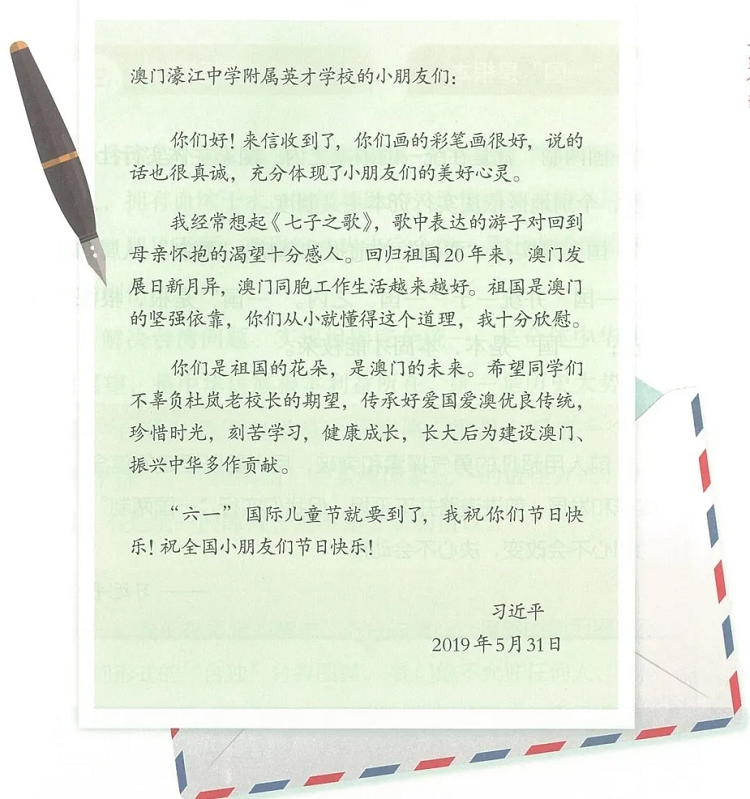 澳门濠江中学附属英才学校的小朋友们：
你们好！来信收到了，你们画的彩笔画很好，说的
话也很真诚，充分体现了小朋友们的美好心灵。
我经常想起《七子之歌》，歌中表达的游子对回到
母亲怀抱的渴望十分感人。回归祖国20年来，澳门发
展日新月异，澳门同胞工作生活越来越好。祖国是澳门
的坚强依靠，你们从小就懂得这个道理，我十分欣慰。
你们是祖国的花朵，是澳门的未来。希望同学们
不辜负杜岚老校长的期望，传承好爱国爱澳优良传统，
珍惜时光，刻苦学习，健康成长，长大后为建设澳门、
振兴中华多作贡献。
“六一”国际儿童节就要到了，我祝你们节日快
乐！祝全国小朋友们节日快乐！
习近平
2019年5月31日